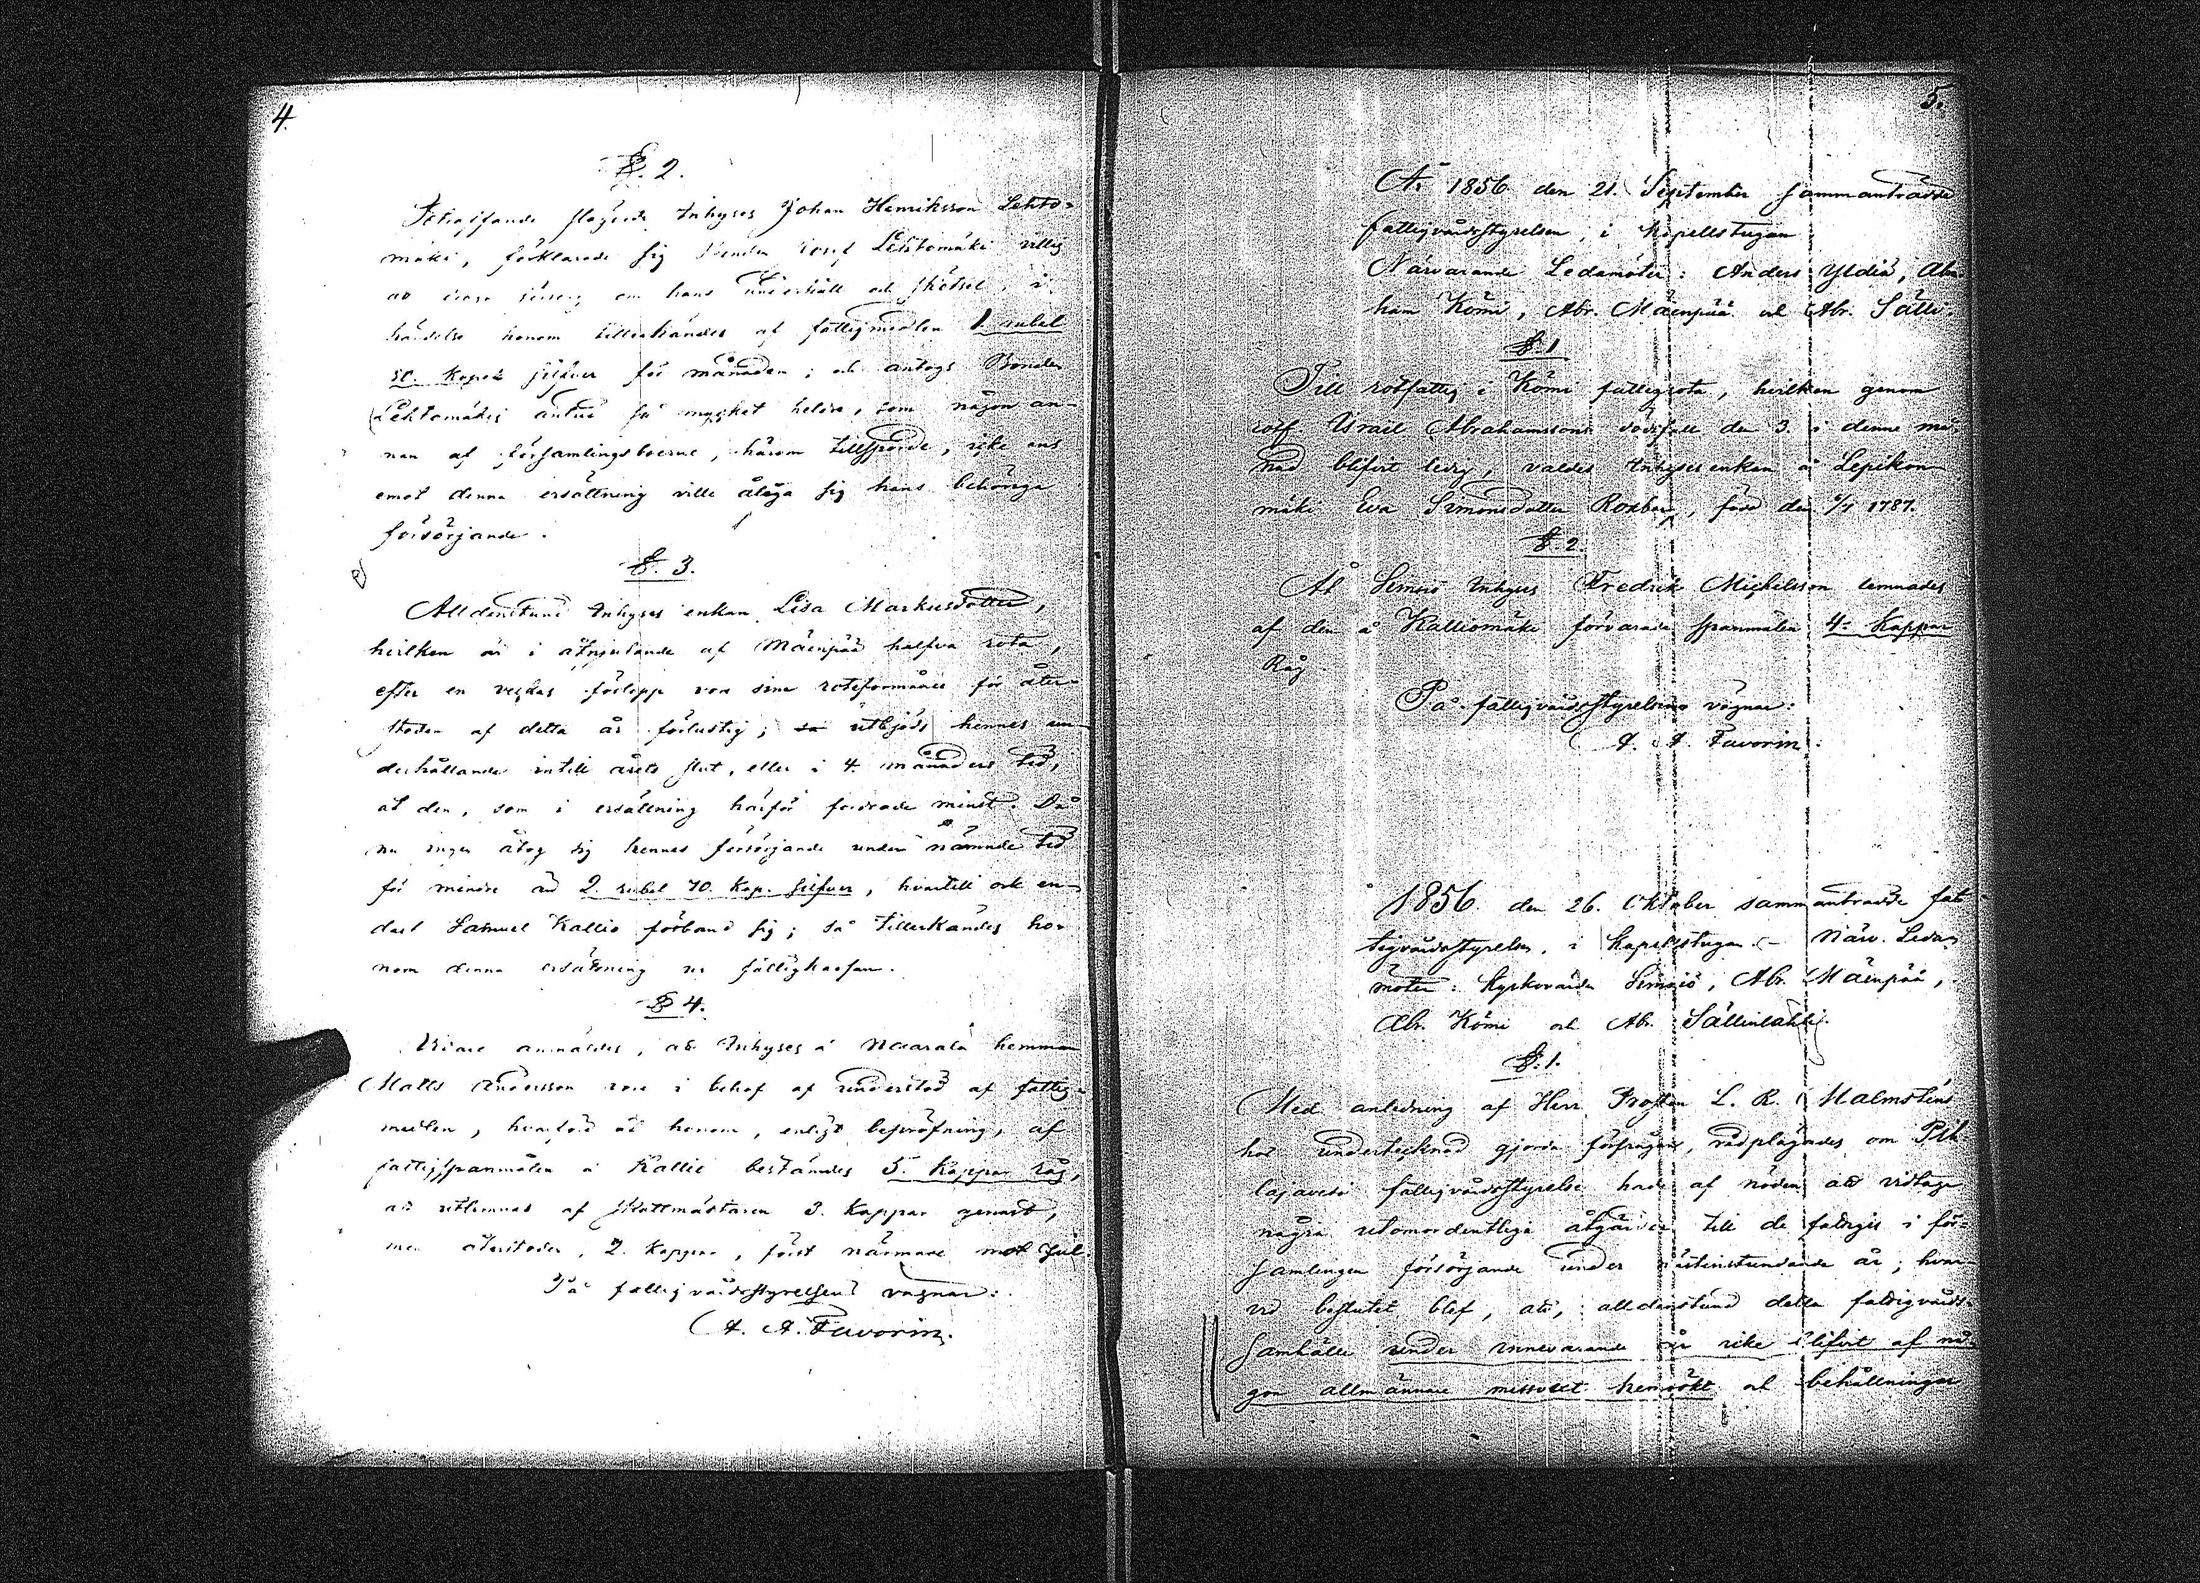 4.
§. 2.
Inhyses Johan Henriksson Lehto-
mäki, förklarade sig Bonden Josef Lehtomäki villig
att draga försorg om hans underhåll och skötsel, i
händelse honom tillerkändes af fattigmedlen 1 rubel
50. Kopek silfver för månaden; och antogs Bonden
Lehtomäkis anbud så mycket heldre, som någon an-
nan af församlingsboerne, härom tillsporde, icke ens
emot denna ersättning ville åtaga sig hans behöriga
försörjande.
§. 3.
Alldenstund Inhyses enkan Lisa Markusdotter,
hvilken är i åtnjutande af Mäenpää halfva rota,
efter en veckas förlopp vore sine roteförmåner för åter-
stoden af detta år förlustig; så utbjöds hennes un-
derhållande intill årets slut, eller i 4. månaders tid,
åt den, som i ersättning härför fordrade minst. Då
nu ingen åtog sig hennes försörjande under nämnde tid
för mindre än 2. rubel 70. Kop. silfver, hvartill ock en-
dast Samuel Kallio förband sig; så tillerkändes ho-
nom denna ersättning ur fattigkassan.
§ 4.
Vidare anmäldes, att Inhyses å Naarala hemman
Matts Andersson vore i behof af understöd af fattig-
medlen, hvarföre åt honom, enligt bepröfning, af
fattigspanmålen å Kallio bestämdes 5. Kappar råg,
att utlemnas af Skattmästaren 3. Kappar genast,
men återstoden, 2. Kappar, först närmare mot Jul.
På fattigvårdsstyrelsens vägnar:
A. A. Favorin.
5.
År 1856 den 21. September sammanträdde
fattigvårdsstyrelsen, i Kapellstugan
Närvarande Ledamöter: Anders Yldiä, Abra-
ham Kömi, Abr. Mäenpää och Abr. Sälli.
§. 1
Till rotfattig i Kömi fattigrota, hvilken genom
rotf. Israel Abrahamssons dödsfall den 3. i denne må-
nad blifvit ledig, valdes Inhyses enkan å Lepikon-
mäki Eva Simonsdotter Roxberg, född den 1787.
§. 2.
Åt Simsiö Inhyses Fredrik Michelsson lemnades
af den å Kalliomäki förvarade spanmålen 4. Kappar
Råg
På fattigvårdsstyrelsens vägnar:
A. A. Favorin.
1856 den 26. Oktober sammanträdde fat-
tigvårdsstyrelsen, i Kapellstugan. - Närv. Leda-
möter: Kyrkovärden Simsiö, Abr. Mäenpää,
Abr. Kömi och Ab. Sällinlahti.
§. 1.
Med anledning af Herr Prosten L. R. Malmsténs
hos undertecknad gjorda förfrågan, rådplägades, om Pih-
lajavesi fattigvårdsstyrelse hade af nöden att vidtaga
några utomordentliga åtgärder till de fattigas i för-
samlingen försörjande under nästinstundande år; hvar-
vid beslutet blef, att, alldenstund detta fattigvårds-
samhälle under innevarande år icke blifvit af nå-
gon allmännare missväxt hemsökt och behållningen